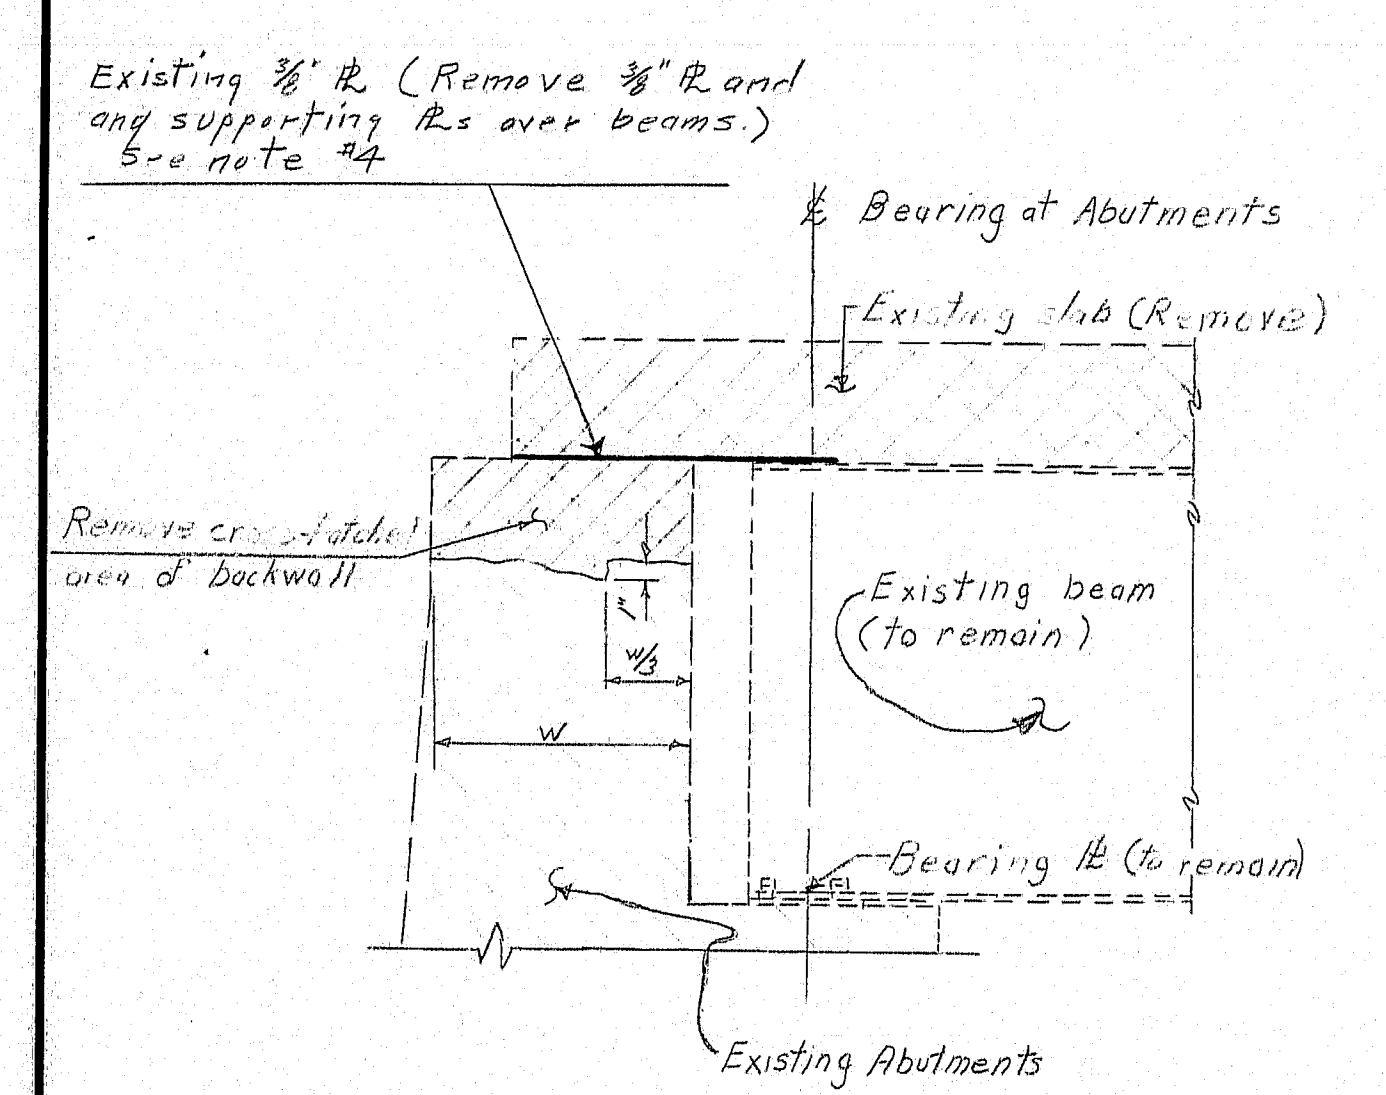 Existing 3/8" ℄ (Remove 3/8" PL and
any supporting PLs over beams.)
See note #4
℄ Bearing at Abutments
Existing slab (Remove)
Remove cross-hatched
area of backwall
1"
W/3
W
Existing beam
(to remain)
Bearing PL (to remain)
Existing Abutments